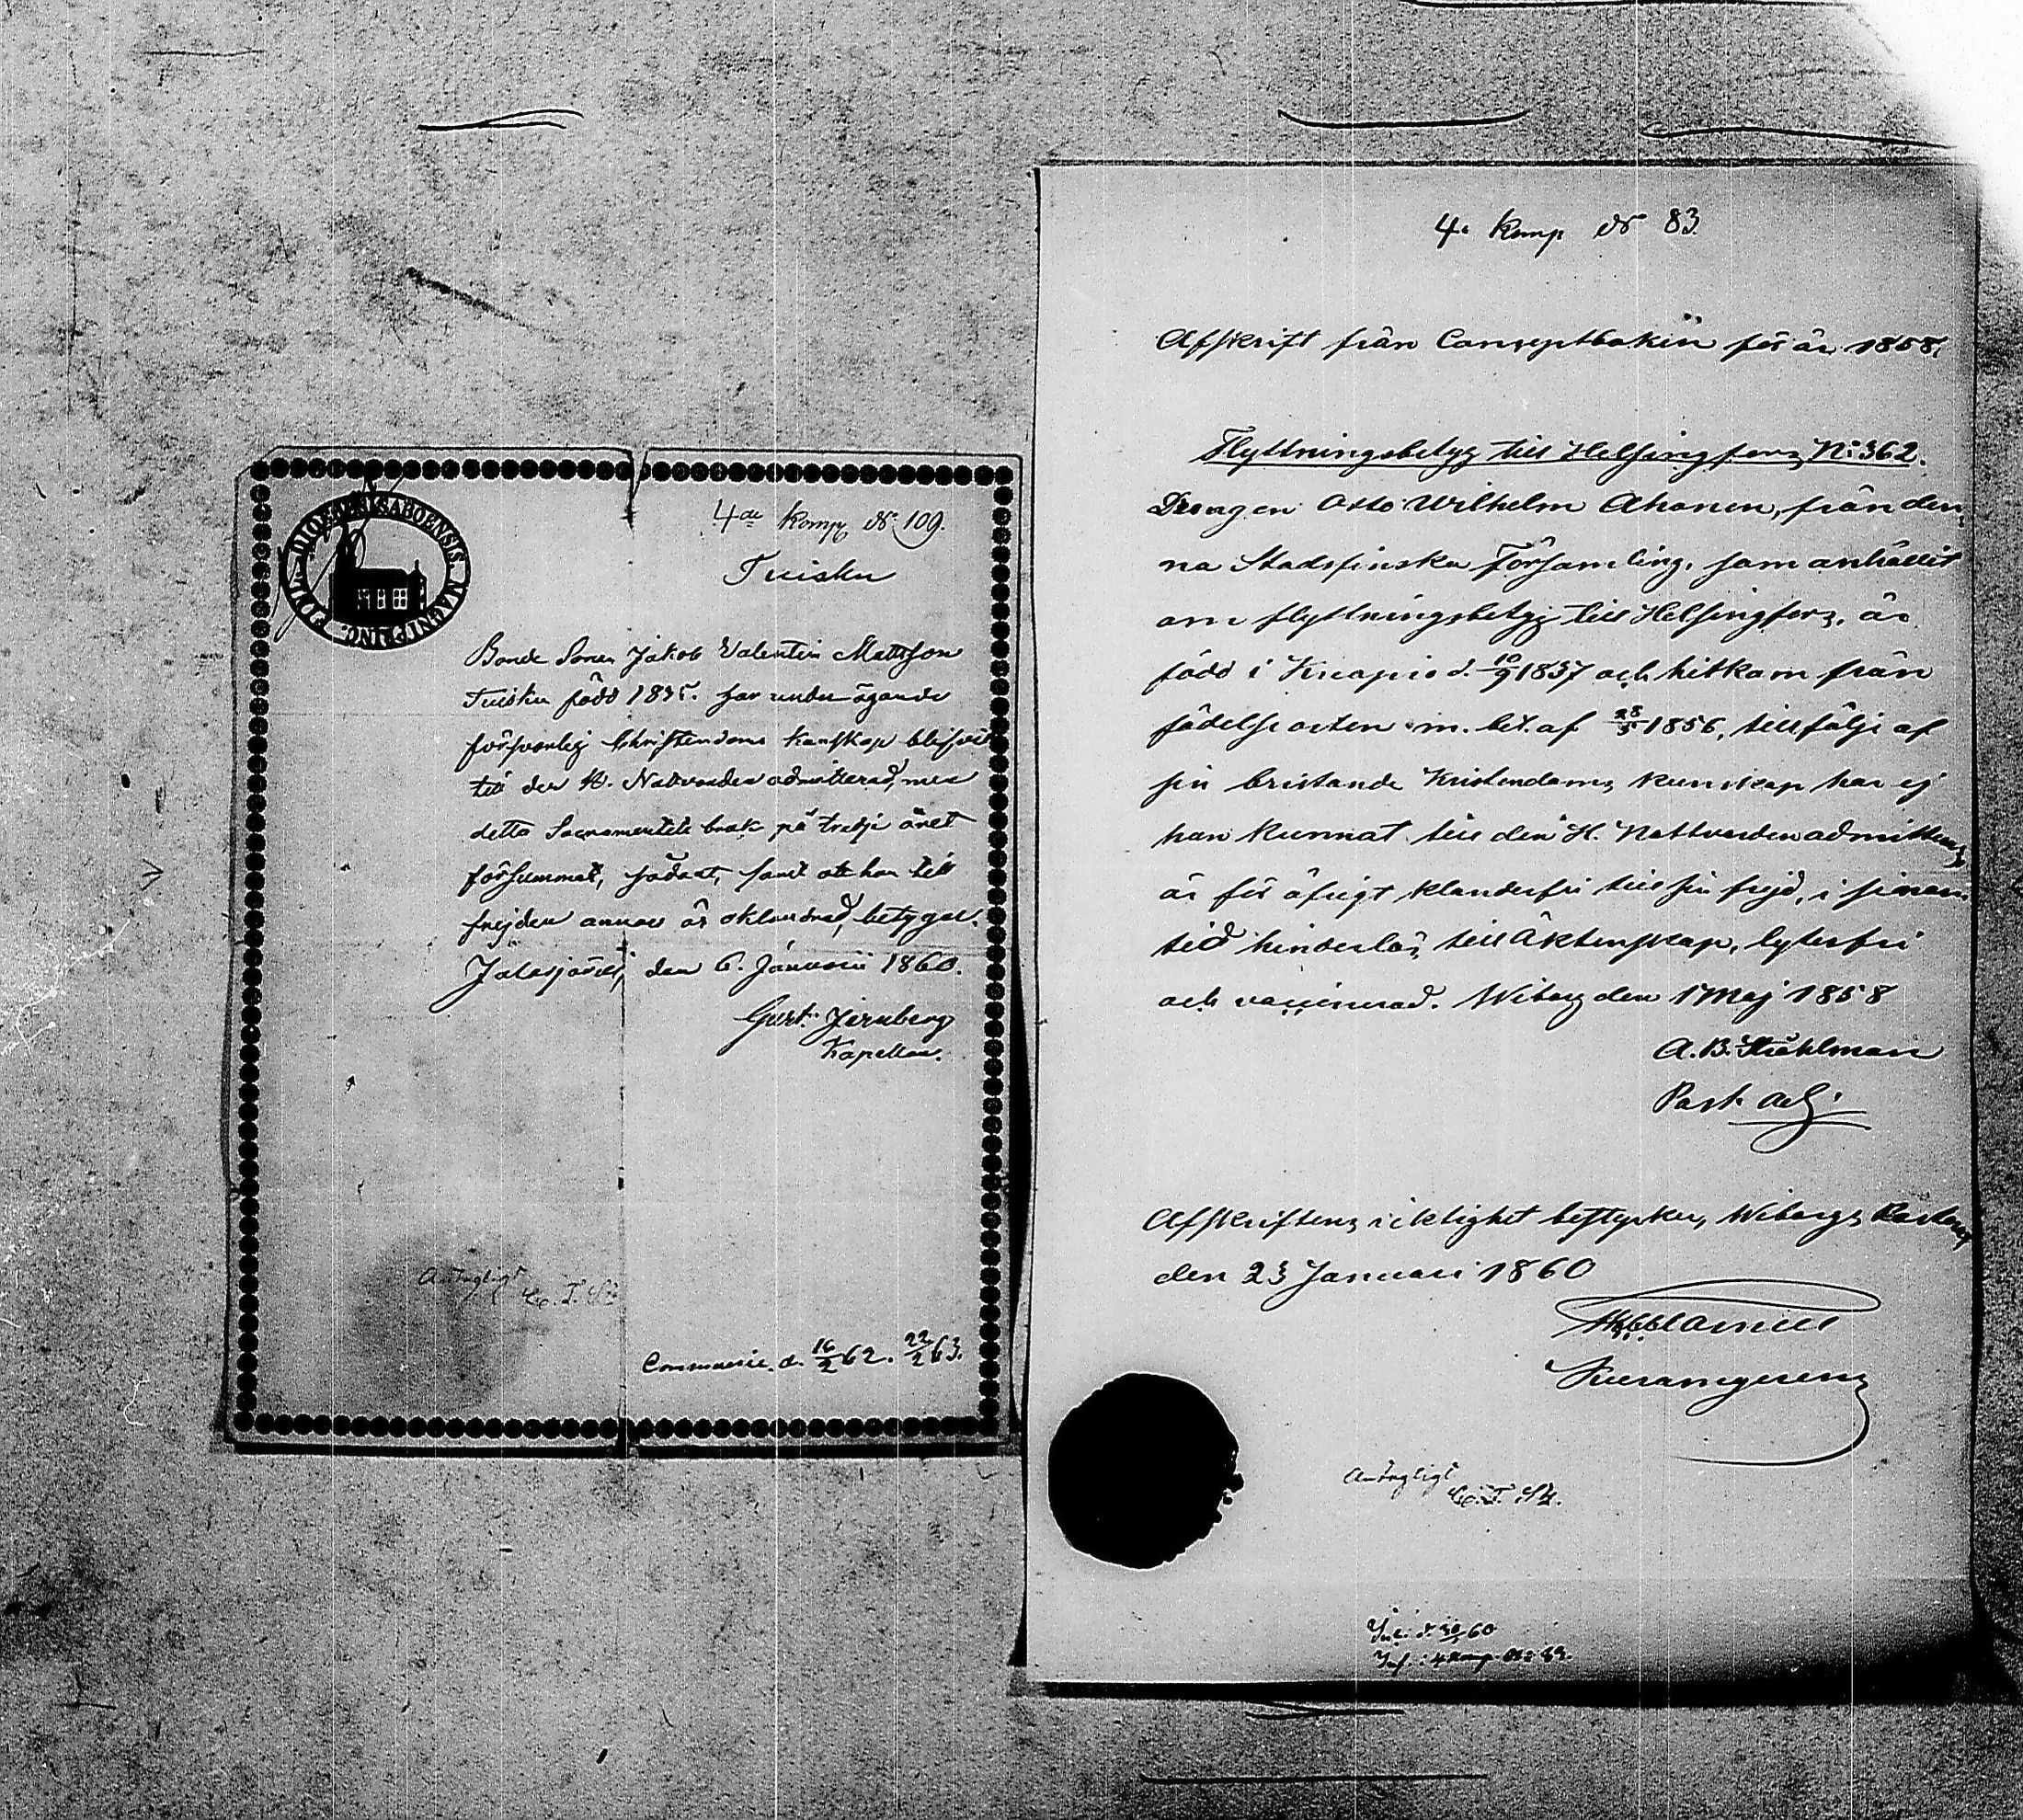 4de Komp No 109.
Tuisku
Bonde Sonen Jakob Valentin Mattsson
Tuisku född 1835. har under ägande
försvarlig Christendoms kunskap blifvit
till den H. Nattvarden admitterad, men
detta Sacramentets bruk på tredje året
försummat, sådant, samt att han till
frejden annars är oklandrad, betygar.
Jalasjärvi, den 6. Januarii 1860.
Gust. Jernberg
Kapellan.
Antagligt
C. T. St.
Communic. d. 16/2 62. 22/2 63.
4e Komp No 83
Afskrift från Conceptboken för år 1858.
Flyttningsbetyg till Helsingfors No 362.
Drengen Otto Wilhelm Ahonen, från den
na Stads finska Församling, som anhållit
om flyttningsbetyg till Helsingfors, är
född i Kuopio d. 10/9 1837 och hitkom från
födelse orten m. bet. af 28/5 1856, till följe af
sin bristande Kristendoms kunskap har ej
han kunnat till den H. Nattvarden admitteras
är för öfrigt klanderfri till sin frejd, i sinom
tid hinderlös till Äktenskap, lytesfri
och vaccinerad. Wiborg den 1 Maj 1858
A. B. Ståhlman
Past. Adj.
Afskriftens riktighet bestyrker, Wiborgs
den 23 Januari 1860
Antagligt
C. T. St.
60